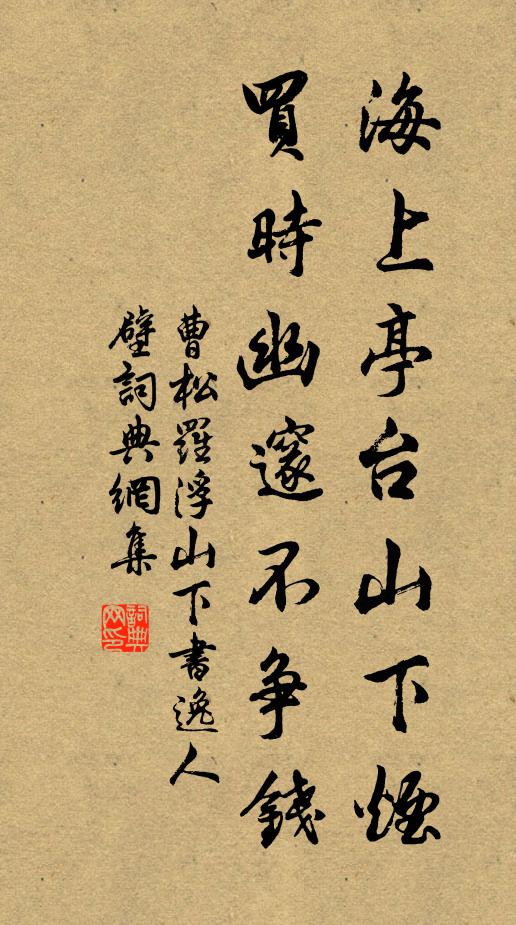 海上亭台山下煙
買時幽邃不爭錢
曹松羅浮山下書逸人
壁詞典網集
詞典網印